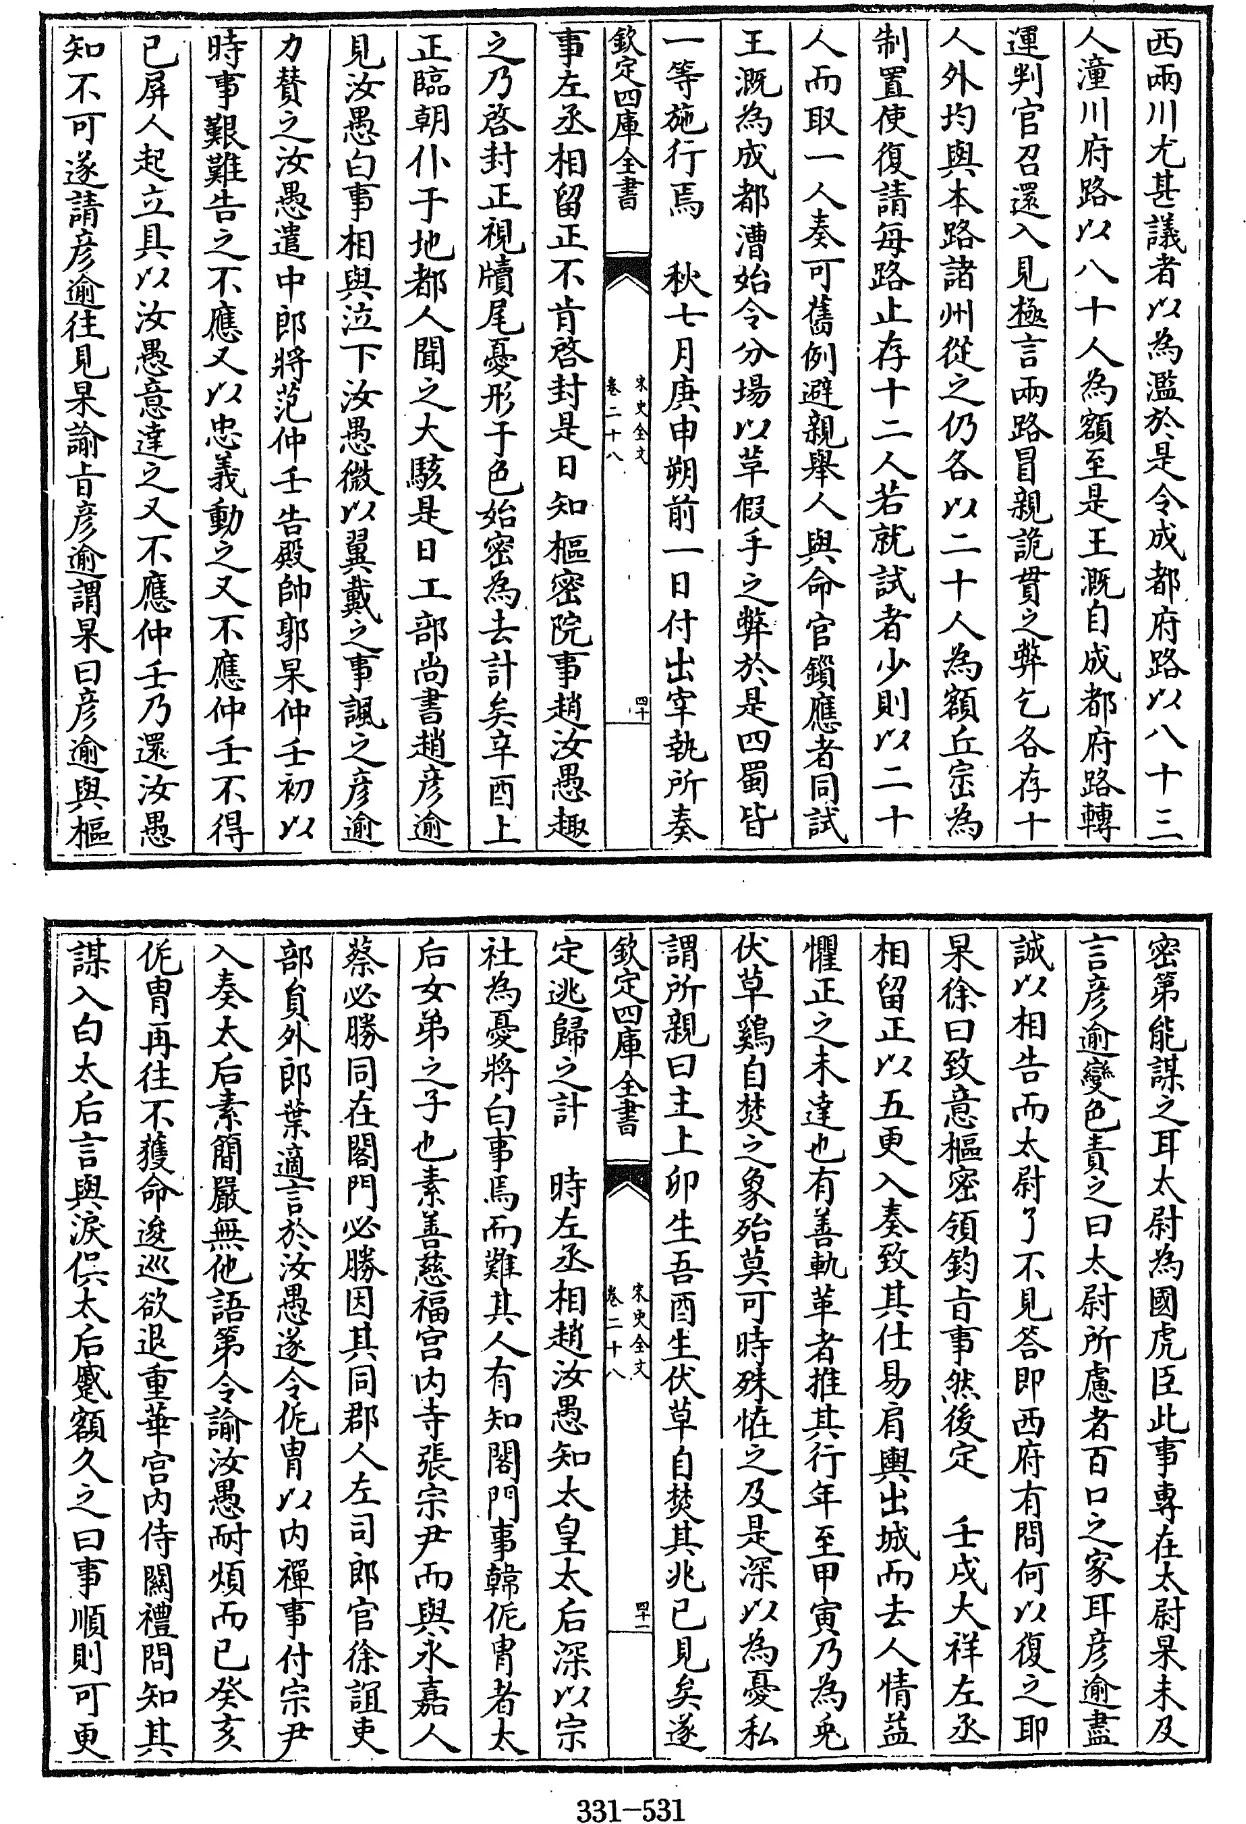 西兩川尤甚議者以為濫於是令成都府路以八十三
人潼川府路以八十人為額至是王溉自成都府路轉
運判官召還入見極言兩路冒親詭貫之弊乞各存十
人外均與本路諸州從之仍各以二十人為額丘崈為
制置使復請每路止存十二人若就試者少則以二十
人而取一人奏可舊例避親舉人與命官鎖應者同試
王溉為成都漕始令分場以革假手之弊於是四蜀皆
一等施行焉 秋七月庚申朔前一日付出宰執所奏
欽定四庫全書 宋史全文 卷二十八 四十
事左丞相留正不肯啓封是日知樞密院事趙汝愚趣
之乃啓封正視牘尾憂形于色始密為去計矣辛酉上
正臨朝仆于地都人聞之大駭是日工部尚書趙彦逾
見汝愚白事相與泣下汝愚微以翼戴之事諷之彦逾
力賛之汝愚遣中郎將范仲壬告殿帥郭杲仲壬初以
時事艱難告之不應又以忠義動之又不應仲壬不得
已屏人起立具以汝愚意達之又不應仲壬乃還汝愚
知不可遂請彦逾往見杲諭㫖彦逾謂杲曰彦逾與樞
密第能謀之耳太尉為國虎臣此事專在太尉杲未及
言彦逾變色責之曰太尉所慮者百口之家耳彦逾盡
誠以相告而太尉了不見答即西府有問何以復之耶
杲徐曰致意樞密領鈞㫖事然後定 壬戌大祥左丞
相留正以五更入奏致其仕易肩輿出城而去人情益
懼正之未達也有善軌革者推其行年至甲寅乃為兎
伏草鷄自焚之象殆莫可時殊恠之及是深以為憂私
謂所親曰主上卯生吾酉生伏草自焚其兆已見矣遂
欽定四庫全書 宋史全文 卷二十八 四十一
定逃歸之計 時左丞相趙汝愚知太皇太后深以宗
社為憂將白事焉而難其人有知閣門事韓侂胄者太
后女弟之子也素善慈福宫内寺張宗尹而與永嘉人
蔡必勝同在閣門必勝因其同郡人左司郎官徐誼吏
部貟外郎葉適言於汝愚遂令侂胄以内禪事付宗尹
入奏太后素簡嚴無他語第令諭汝愚耐煩而已癸亥
侂胄再往不獲命逡巡欲退重華宫内侍關禮問知其
謀入白太后言與淚俱太后蹙額久之曰事順則可更
331-531